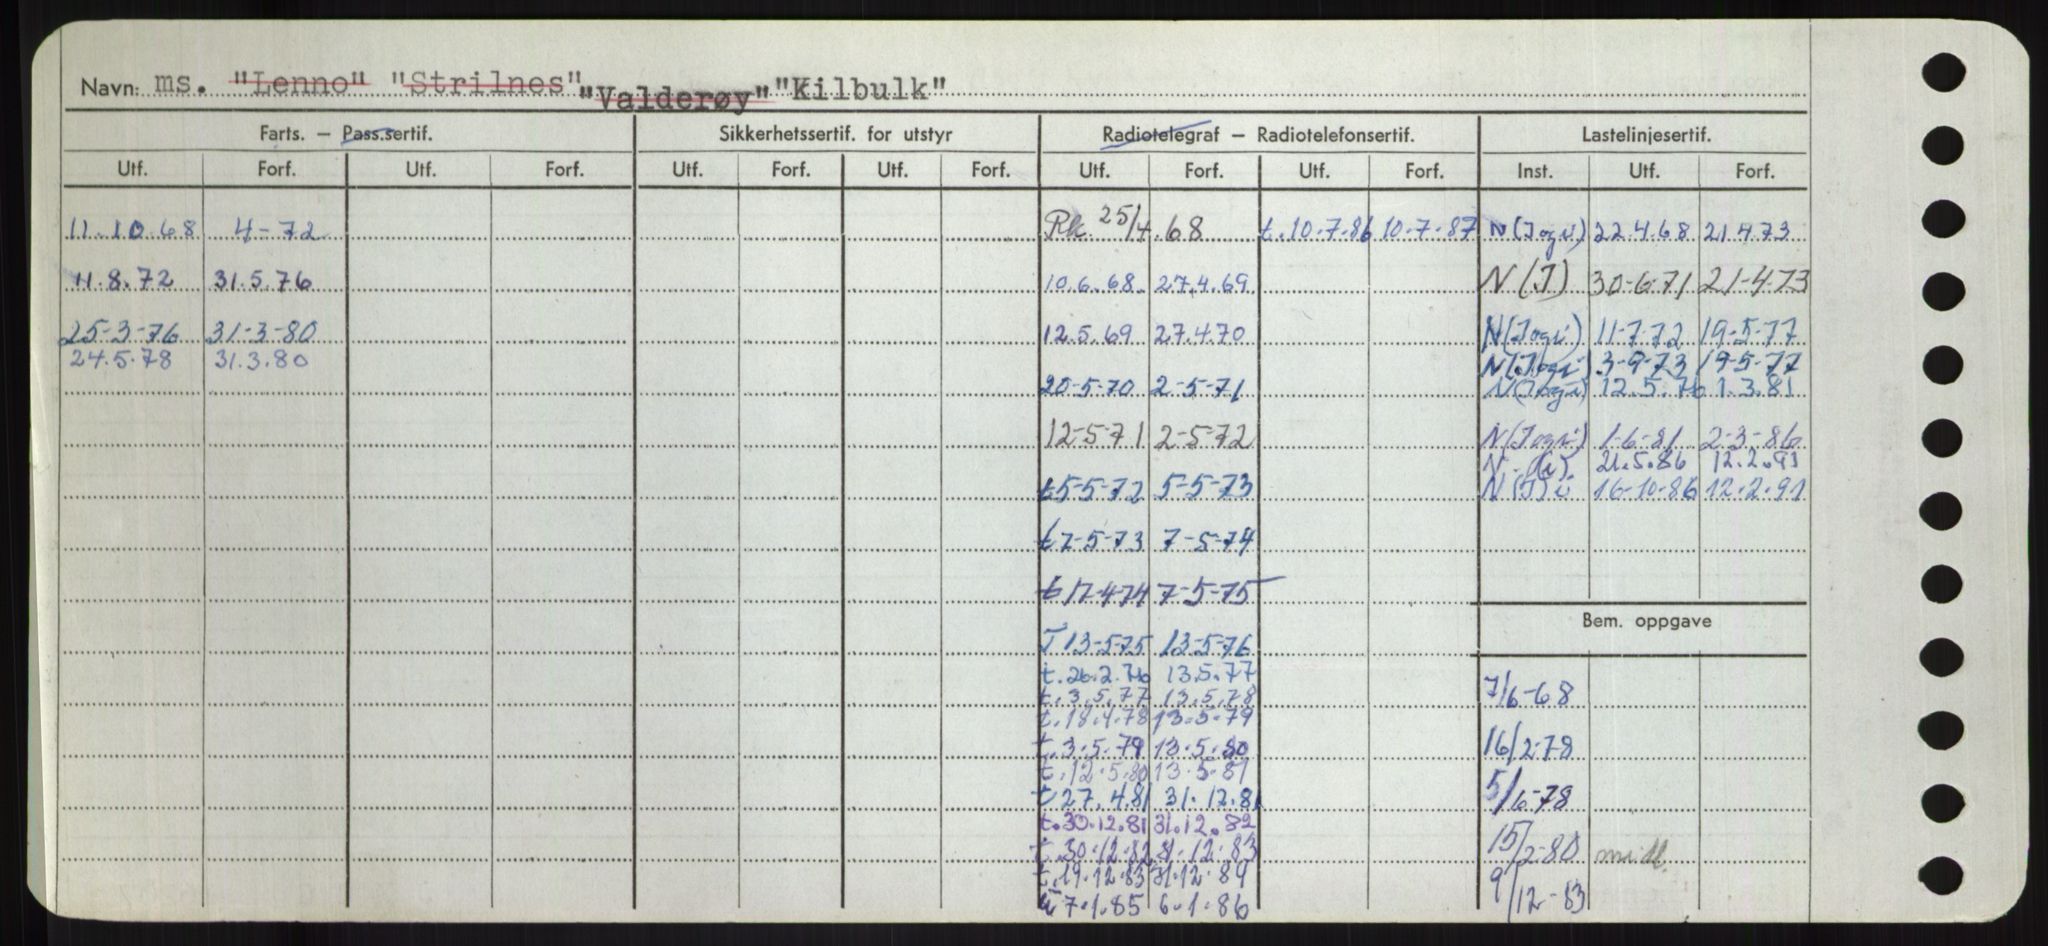 Navn: ms. "Lenno" "Strilnes" "Valderøy" "Kilbulk"
Farts. — Pass.sertif. Sikkerhetssertif. for utstyr Radiotelegraf — Radiotelefonsertif. Lastelinjesertif.
Utf. Forf. Utf. Forf. Utf. Forf. Utf. Forf. Utf. Forf. Utf. Forf. Inst. Utf. Forf.
11.10.68 4-72 Rk 25/4.68 t.10.7.86 10.7.87 N(Jogi) 22.4.68 21.4.73
11.8.72 31.5.76 10.6.68. 27.4.69 N(J) 30-6-71 21-4-73
25-3-76 31-3-80 12.5.69 27.4.70 N(Jogi) 11-7-72 19-5-77
24.5.78 31.3.80 N(Jogi) 3-9-73 19-5-77
20-5-70 2-5-71 N(Jogi) 12.5.76 1.3.81
12-5-71 2-5-72 N(Jogi) 1-6-81 2-3-86
N 21.5.86 12.2.91
t5-5-72 5-5-73 N(J)i 16-10-86 12.2.91
t7-5-73 7-5-74
t17-4-74 7-5-75
Bem. oppgave
T 13-5-75 13-5-76
t.26.2.76 13.5.77
t.3.5.77 13.5.78 7/6-68
t.18.4.78 13.5.79
t.3.5.79 13.5.80 16/2-78
t.12.5.80 13.5.81
t27.4.81 31.12.81 5/6-78
t.30.12.81 31.12.82
t.30.12.82 31.12.83 15/2-80 midl.
t.19.12.83 31.12.84
t 7.1.85 6.1.86 9/12-83